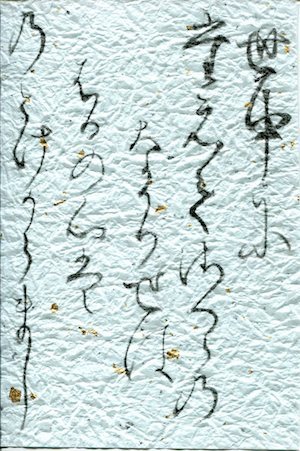 世中に
たえてさくらの
なかりせは
はるの心は
のとけからまし